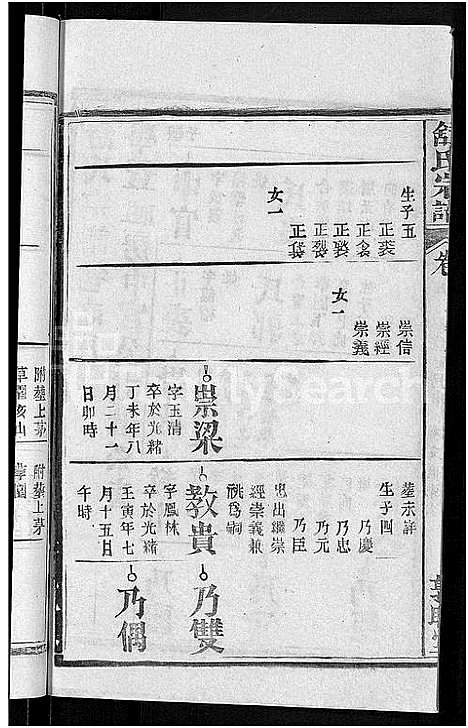 舒氏宗譜
卷
生子五
正裘
正袞
正襲
正裂
正袋
女一
崇信
崇經
崇義
女一
崇梁
字玉清
卒於光緒
丁未年八
月二十一
日卯時
墓未詳
生子四
乃慶
乃忠
乃元
乃臣
忠出繼崇
經崇義兼
祧爲嗣
敦貴
字鳳林
卒於光緒
壬寅年七
月十五日
午時
乃雙
乃偶
附墓上茅
草
山
附葬上茅
草園
FamilySearch